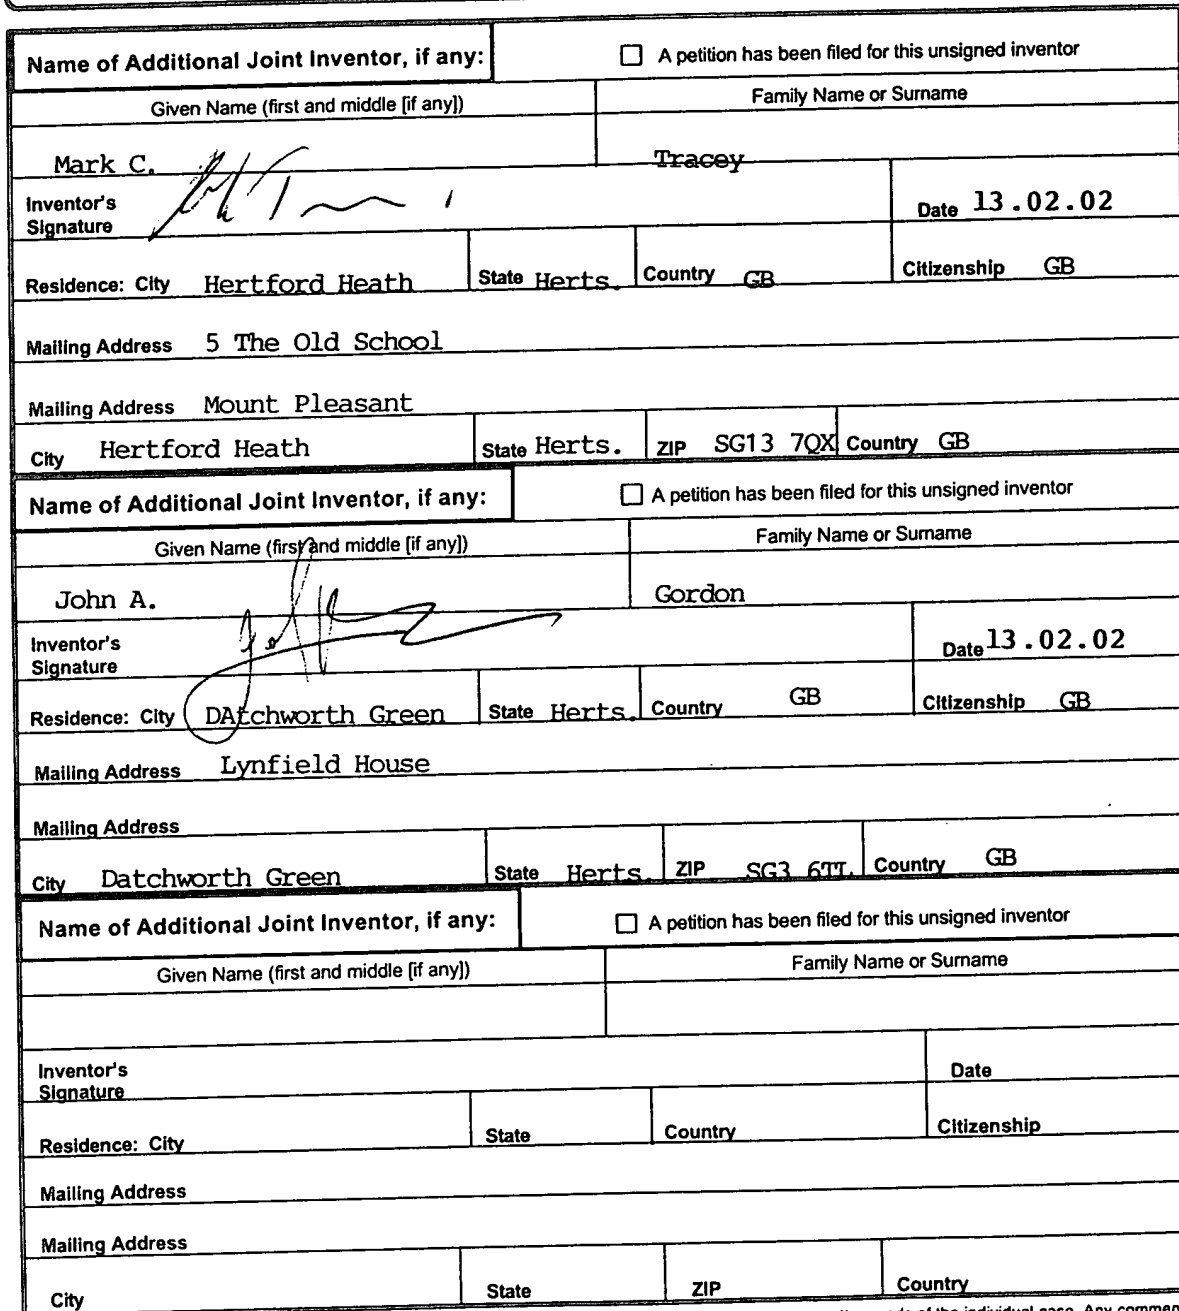 Name of Additional Joint Inventor, if any: ☐ A petition has been filed for this unsigned inventor
Given Name (first and middle [if any]) Family Name or Surname
Mark C. Tracey
Inventor's
Signature Date 13.02.02
Residence: City Hertford Heath State Herts. Country GB Citizenship GB
Mailing Address 5 The Old School
Mailing Address Mount Pleasant
City Hertford Heath State Herts. ZIP SG13 7QX Country GB
Name of Additional Joint Inventor, if any: ☐ A petition has been filed for this unsigned inventor
Given Name (first and middle [if any]) Family Name or Surname
John A. Gordon
Inventor's
Signature Date 13.02.02
Residence: City DAtchworth Green State Herts. Country GB Citizenship GB
Mailing Address Lynfield House
Mailing Address
City Datchworth Green State Herts. ZIP SG3 6TL Country GB
Name of Additional Joint Inventor, if any: ☐ A petition has been filed for this unsigned inventor
Given Name (first and middle [if any]) Family Name or Surname
Inventor's
Signature Date
Residence: City State Country Citizenship
Mailing Address
Mailing Address
City State ZIP Country
of the individual case. Any